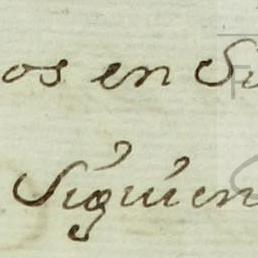 os en Su
Siguien